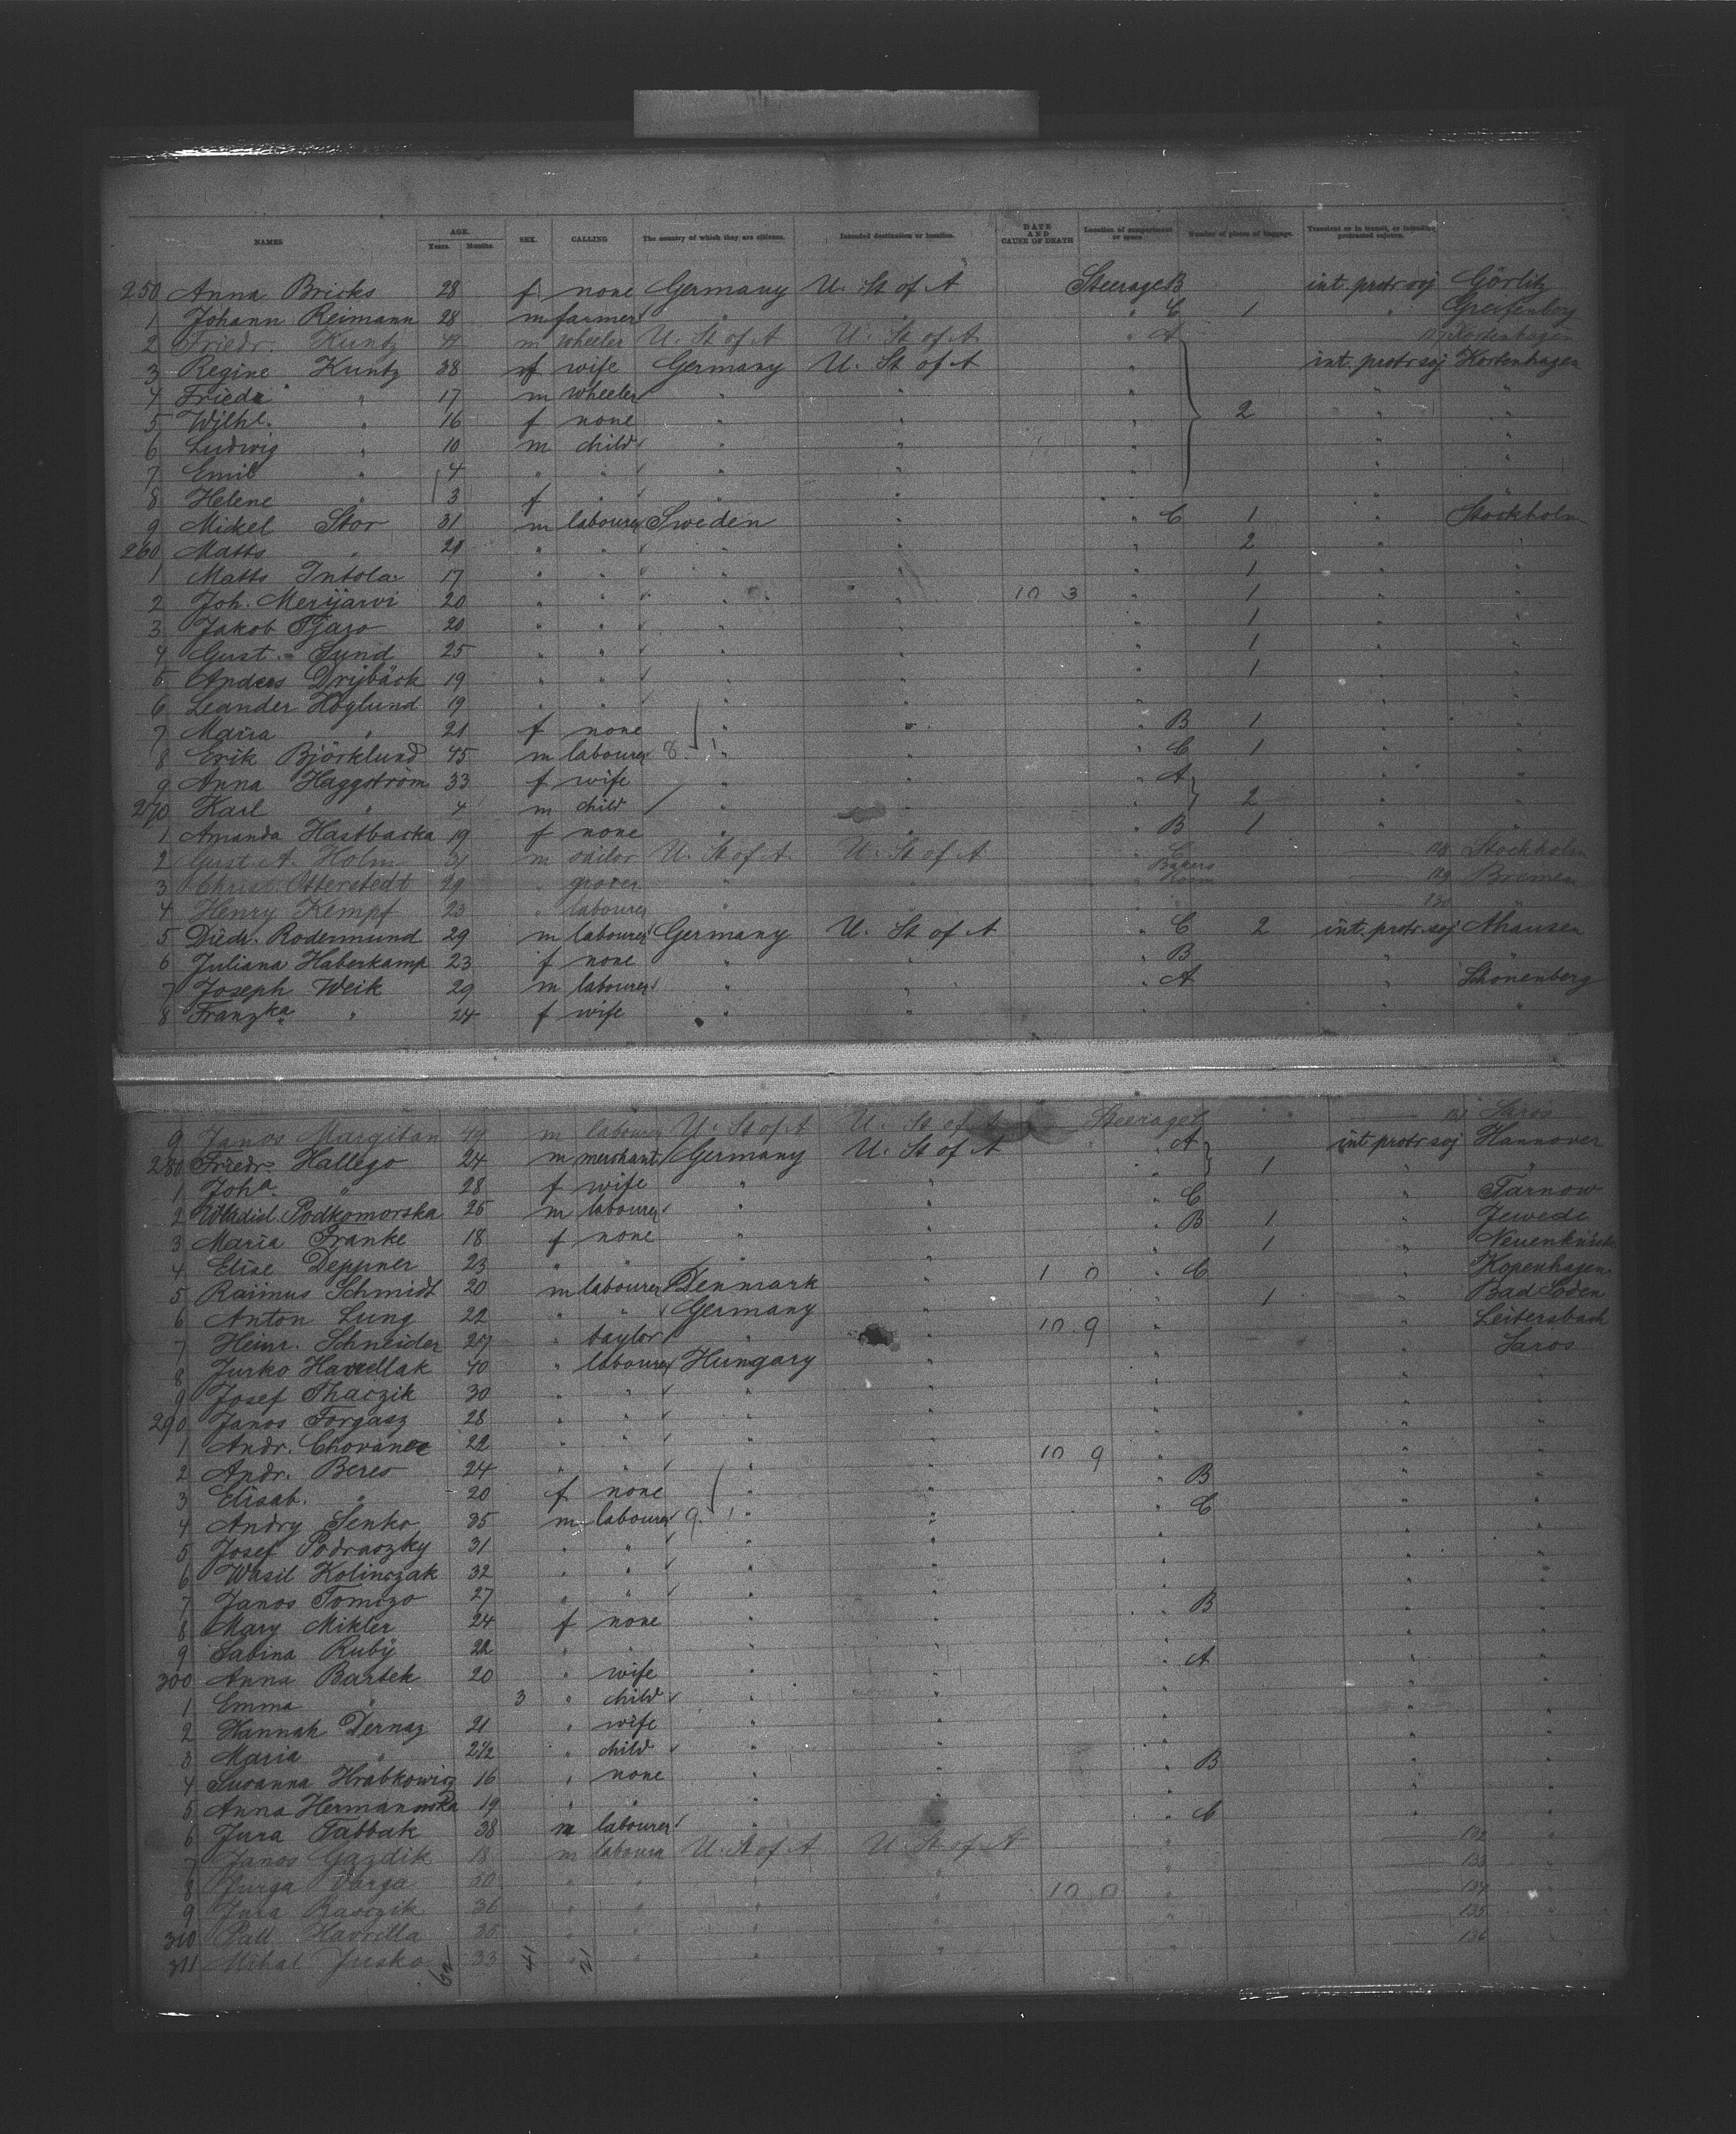 NAMES AGE. Years. Months. SEX. CALLING The country of which they are citizens. Intended destination or location. DATE AND CAUSE OF DEATH Location of compartment or space Number of pieces of baggage. Transient or in transit, or intending protracted sojourn.
250 Anna Bricks 28 f none Germany U. St of A Steerage B int. protr soj Görlitz
1 Johann Reimann 28 m farmer " " " C 1 " Greifenberg
2 Friedr. Kuntz m wheeler U. St of A U. St of A " A
3 Regine Kuntz 38 f wife Germany U. St of A " int. protr soj Kortenhagen
4 Friedr " 17 m wheeler " " " " "
5 Wilhl. " 16 f none " " " 2 " "
6 Ludwig " 10 m child " " " " "
7 Emil " 4 " " " " " " "
8 Helene " 3 f " " " " "
9 Mickel Stor 31 m labourer Sweden " " C 1 " Stockholm
260 Matts " 21 " " " " " 2 " "
1 Matts Intola 17 " " " " " 1 " "
2 Joh. Merijarvi 20 " " " " 10 3 " 1 " "
3 Jakob Pjaso 20 " " " " " 1 " "
4 Gust. Sund 25 " " " " " 1 " "
5 Anders Drijbäck 19 " " " " " 1 " "
6 Leander Höglund 19 " " " " " " "
7 Maria " 21 f none " " " B 1 " "
8 Erik Björklund 45 m labourer 8. 1 " " " C 1 " "
9 Anna Haggström 33 f wife " " " A " "
270 Karl " 4 m child " " " 2 " "
1 Amanda Hastbacka 19 f none " " " B 1 " "
2 Gust. A. Holm 31 m sailor U. St of A U. St of A " C 128 Stockholm
3 Christ. Otterstedt 29 " grocer " " " Bakers Room 129 Bremen
4 Henry Kempf 23 " labourer " " " 130 "
5 Diedr. Rodenmund 29 m labourer Germany U. St of A " C 2 int. protr soj Ahausen
6 Juliana Haberkamp 23 f none " " " B " "
7 Joseph Weik 29 m labourer " " " A " Schönenberg
8 Franzka " 24 f wife " " " "
9 Janos Margitan 49 m labourer U. St of A U. St of A Steerage C 131 Saros
280 Friedr. Hallego 24 m merchant Germany U. St of A " A int protr soj Hannover
1 Joha " 28 f wife " " " 1 " "
2 Wladisl. Podkomorska 25 m labourer " " " C " Tarnow
3 Maria Franke 18 f none " " " B 1 " Jewede
4 Elise Deppner 23 " " " " " 1 "
5 Rasmus Schmidt 20 m labourer Denmark " 1 0 " C " Kopenhagen
6 Anton Lung 22 " " Germany " " 1 " Bad Soden
7 Heinr. Schneider 27 " taylor " " 10 9 " " Leitersbach
8 Jurko Havedlak 40 " labourer Hungary " " " Saros
9 Josef Thaczik 30 " " " " " " "
290 Janos Forgasz 28 " " " " " " "
1 Andr. Chovance 22 " " " " " " "
2 Andr. Beres 24 " " " " 10 9 " " "
3 Elisab. " 20 f none " " " B " "
4 Andry Senko 35 m labourer 9. 1 " " " C " "
5 Josef Podraszky 31 " " " " " " "
6 Wasil Kolinczak 32 " " " " " " "
7 Janos Tomczo 27 " " " " " " "
8 Mary Mikler 24 f none " " " B " "
9 Sabina Ruby 22 " " " " " " "
300 Anna Bartek 20 " wife " " " A " "
1 Emma " 3 " child " " " " "
2 Hannah Dernaz 21 " wife " " " " "
3 Maria " 2½ " child " " " " "
4 Susanna Hrabkowicz 16 " none " " " B " "
5 Anna Hermanowska 19 " " " " " " "
6 Jura Babbak 38 m labourer " " " C " "
7 Janos Gazdik 18 m laboura U. St of A U. St of A " 132 "
8 Jurga Varga 30 " " " " " 133 "
9 Jura Rasczik 36 " " " " 10 0 " 134 "
310 Pall Havrilla 35 " " " " " 135 "
311 Mihal Jusko 33 " " " " " 136 "
62 41 21